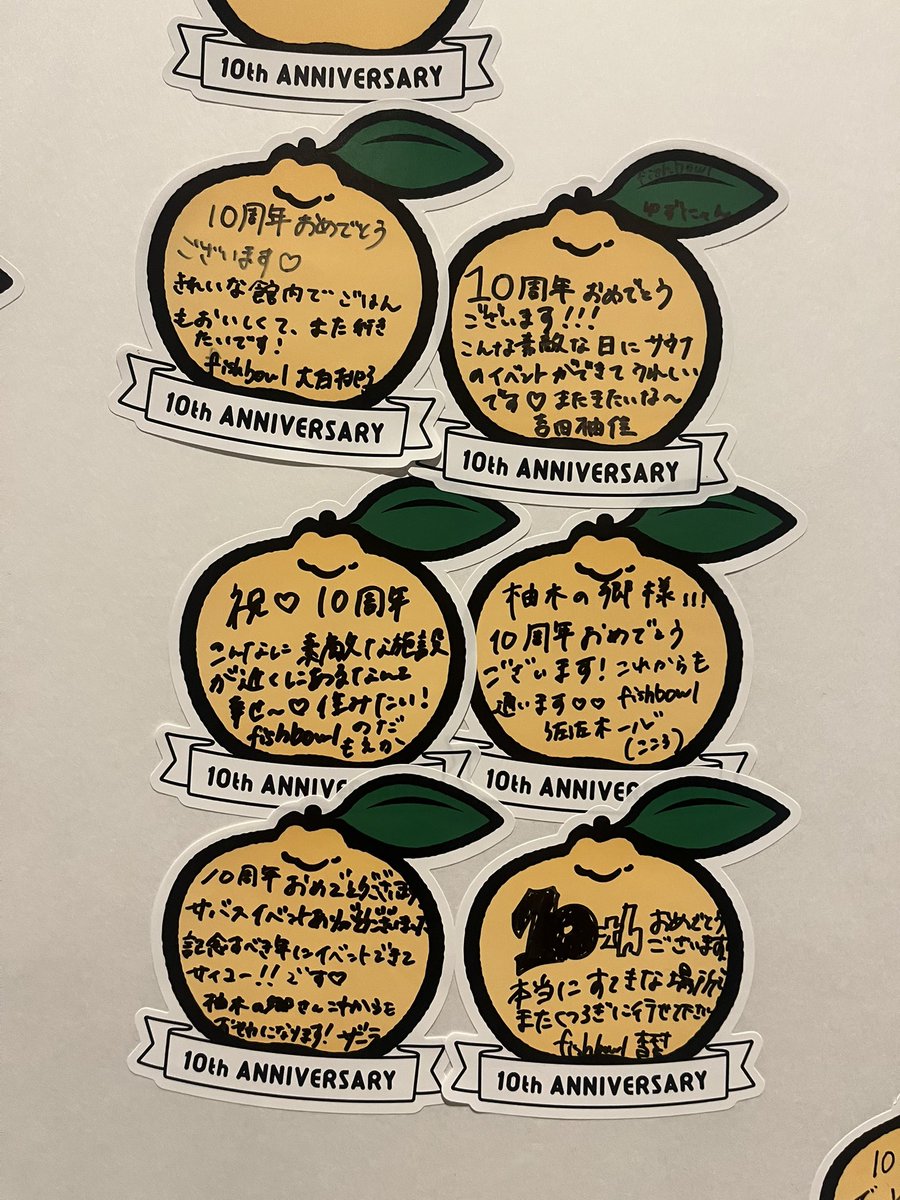 10th ANNIVERSARY
10周年おめでとう
ございます♡
きれいな館内でごはん
もおいしくて、また行き
たいです!
fishbowl 大白桃子
10th ANNIVERSARY
fishbowl
ゆずにゃん
10周年おめでとう
ございます!!!
こんな素敵な日にサウナ
のイベントができてうれしい
です♡またきたいな〜
吉田柚佳
10th ANNIVERSARY
祝♡10周年
こんなに素敵な施設
が近くにあるなんて
幸せ〜♡住みたい!
fishbowl のだ
もえか
10th ANNIVERSARY
柚木の郷様!!!
10周年おめでとう
ございます!これからも
通います♡♡ fishbowl
佐佐木一
(こころ)
10th ANNIVERSARY
10周年おめでとうございます
サバスイベントありがとうございました
記念すべき年にイベントできて
サイコー!!です♡
柚木の郷さんこれからも
おせわになります!
10th ANNIVERSARY
10th おめでとう
ございます
本当にすてきな場所
またくつろぎに行かせて下さい
fishbowl
10th ANNIVERSARY
10